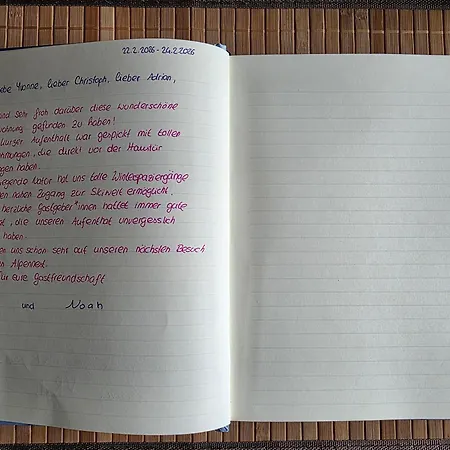 22.2.2026 - 24.2.2026
Yvonne, lieber Christoph, lieber Adrian,
sind sehr froh darüber diese wunderschöne
gefunden zu haben!
kurzer Aufenthalt war gespickt mit tollen
, die direkt vor der Haustür
haben.
Natur hat uns tolle Winterspaziergänge
nahen Zugang zur Skiwelt ermöglicht.
herzliche Gastgeber*innen hattet immer gute
, die unseren Aufenthalt unvergesslich
haben.
uns schon sehr auf unseren nächsten Besuch
Alpennest.
für eure Gastfreundschaft
und Noah